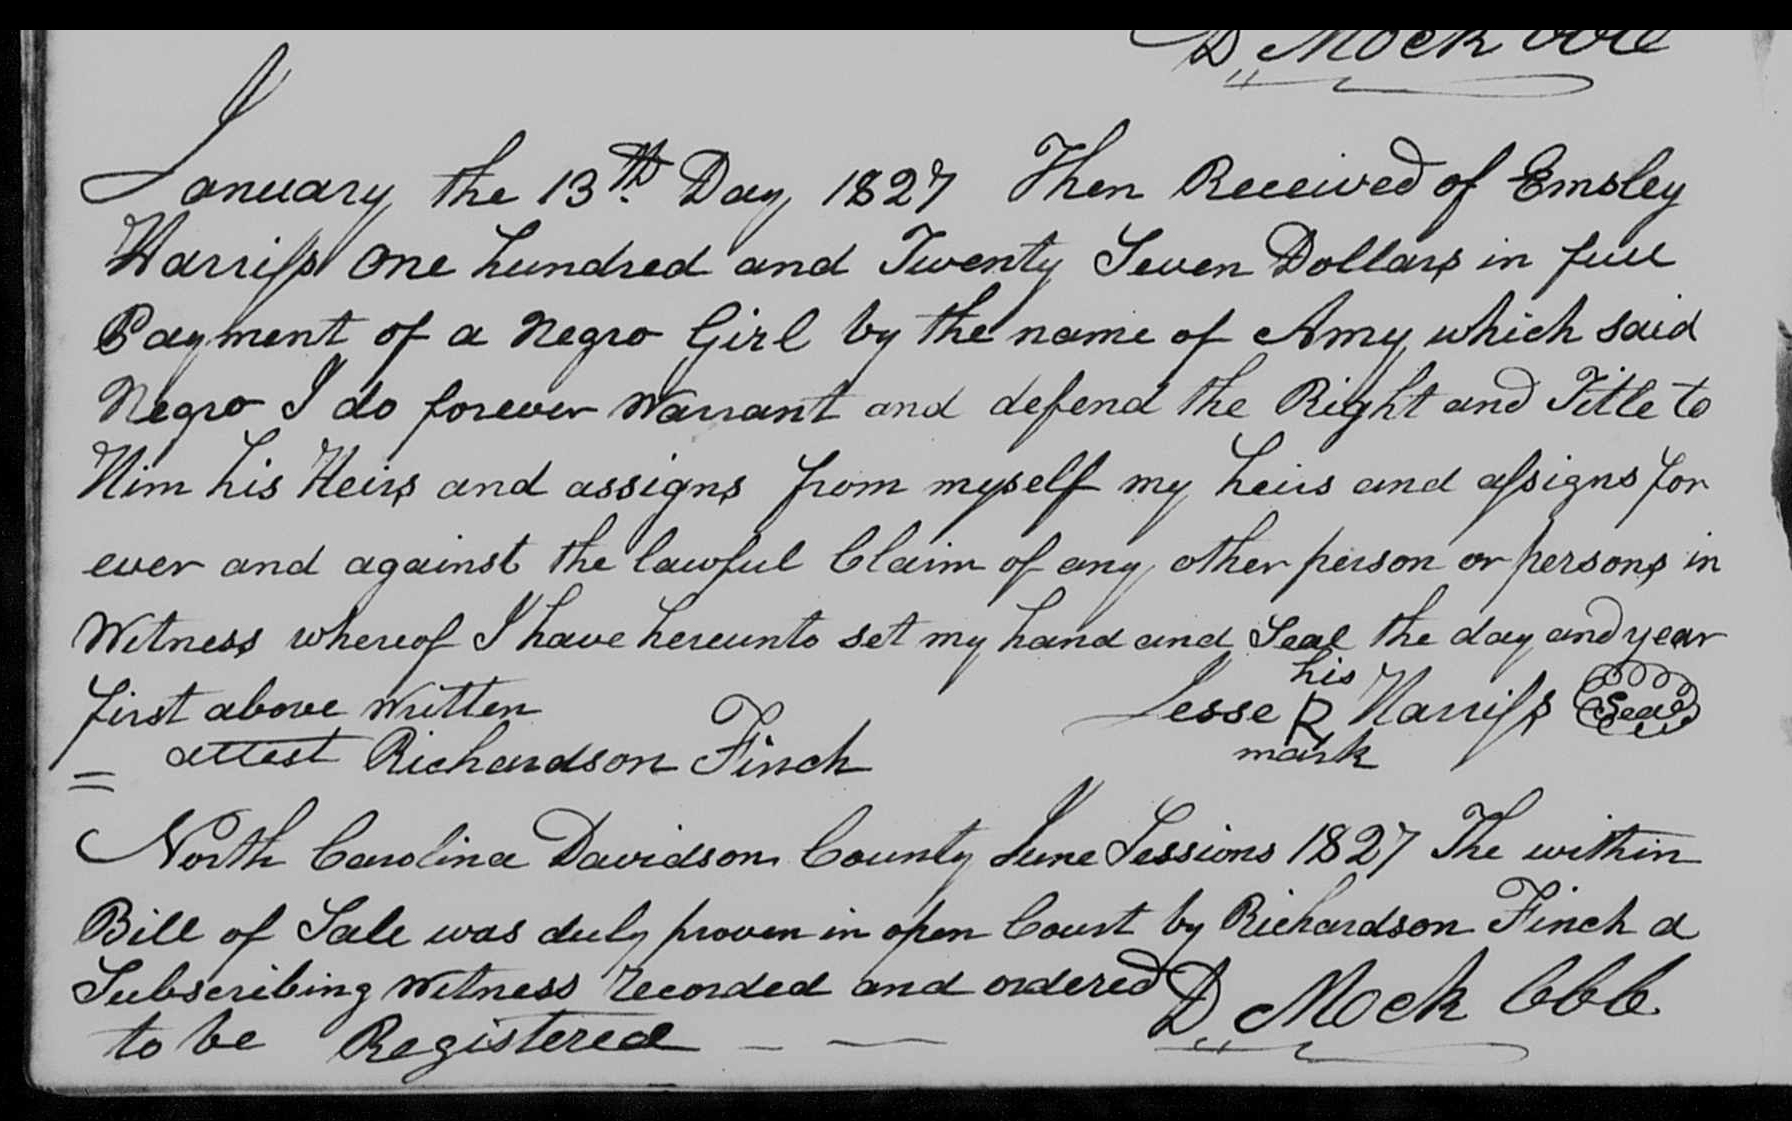 D Mock CCC
January the 13th Day 1827 Then Received of Emsley
Harriss one hundred and Twenty Seven Dollars in full
Payment of a Negro Girl by the name of Amy which said
Negro I do forever Warrant and defend the Right and Title to
Him his Heirs and assigns from myself my heirs and assigns for
ever and against the lawful Claim of any other person or persons in
Witness whereof I have hereunto set my hand and Seal the day and year
first above Written
his
Jesse R Harriss Seal
mark
attest Richardson Finch
North Carolina Davidson County June Sessions 1827 The within
Bill of Sale was duly proven in open Court by Richardson Finch a
Subscribing Witness recorded and ordered
to be Registered
D Mock CCC